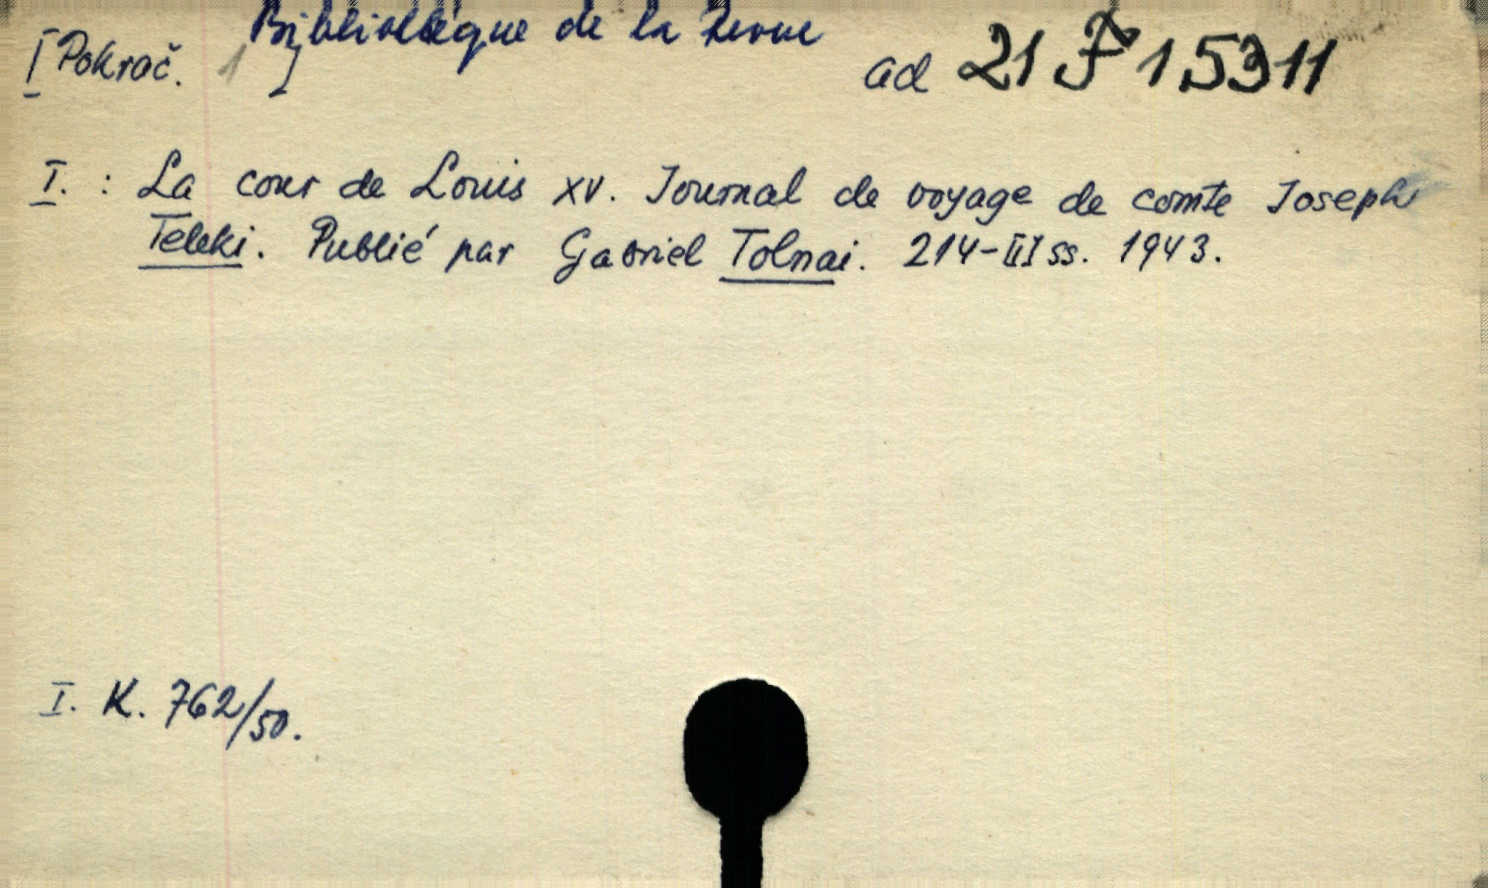 I Pokrač. 1 Bibliothèque de la Revue ad 21 F 15311
I. : La cour de Louis XV. Journal de voyage de comte Joseph
Teleki. Publié par Gabriel Tolnai. 214-III ss. 1943.
I. K. 762/50.